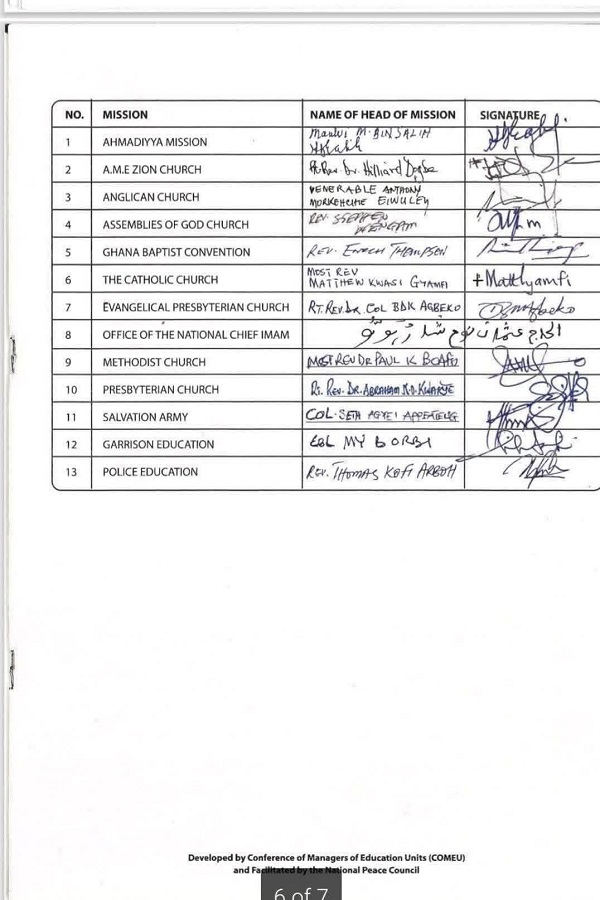 NO. MISSION NAME OF HEAD OF MISSION SIGNATURE
1 AHMADIYYA MISSION Maulvi M. BIN SALIH
2 A.M.E ZION CHURCH Rt. Rev. Dr. Hilliard Dogbe
3 ANGLICAN CHURCH VENERABLE ANTHONY
EIWULEY
4 ASSEMBLIES OF GOD CHURCH REV. STEPHEN
WENGAM
5 GHANA BAPTIST CONVENTION REV. ENOCH THOMPSON
6 THE CATHOLIC CHURCH MOST REV
MATTHEW KWASI GYAMFI +Matthyamfi
7 EVANGELICAL PRESBYTERIAN CHURCH RT. REV. DR. COL BDK AGBEKO
8 OFFICE OF THE NATIONAL CHIEF IMAM الحاج عثمان نوح
9 METHODIST CHURCH MOST REV DR PAUL K BOAFO
10 PRESBYTERIAN CHURCH Rt. Rev. DR. ABRAHAM N.O. KWAKYE
11 SALVATION ARMY COL. SETH AGYEI APPEATENG
12 GARRISON EDUCATION COL MY BORBI
13 POLICE EDUCATION REV. THOMAS KOFI ARBOH
Developed by Conference of Managers of Education Units (COMEU)
and Facilitated by the National Peace Council
6 of 7